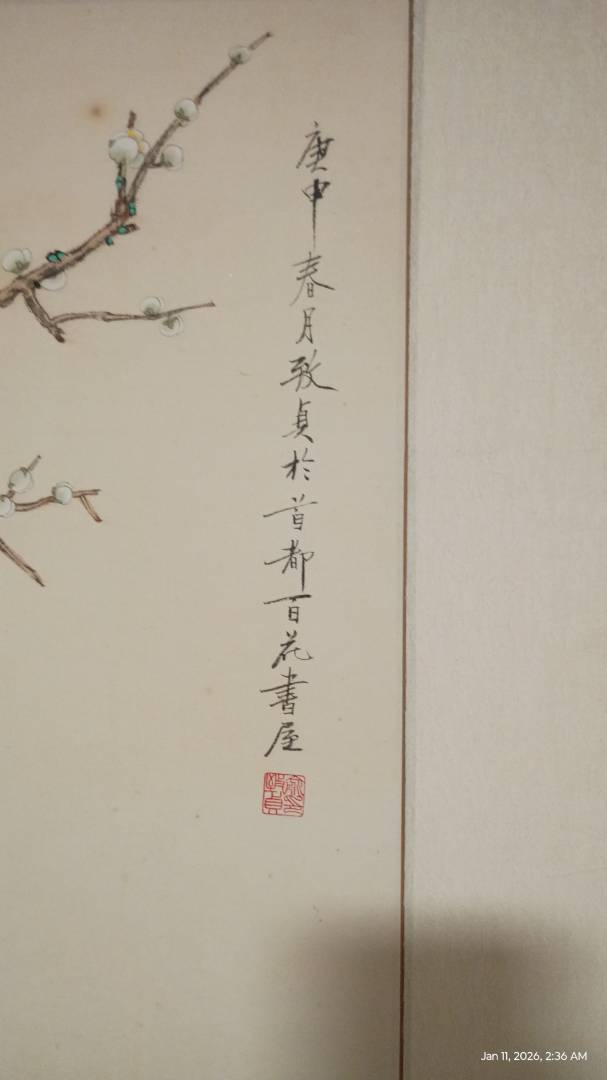 庚申春月致貞於首都百花書屋
Jan 11, 2026, 2:36 AM